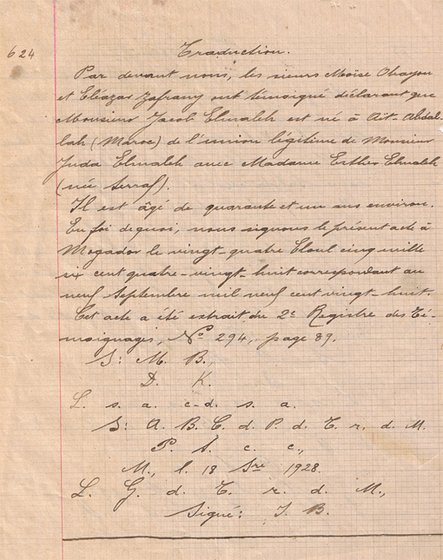 624
Traduction.
Par devant nous, les sieurs Moïse Ohayou
et Eléazar Zafrany ont témoigné déclarant que
Monsieur Jacob Elmaleh est né à Aït-Abdal-
lah (Maroc) de l'union légitime de Monsieur
Juda Elmaleh avec Madame Esther Elmaleh
(née Serraf).
Il est âgé de quarante et un ans environ.
En foi de quoi, nous signons le présent acte à
Mogador le vingt-quatre Eloul cinq mille
six cent quatre-vingt-huit correspondant au
neuf Septembre mil neuf cent vingt-huit.
Cet acte a été extrait du 2e Registre des Té-
moignages, No 294, page 89.
S: M. B.
D. K.
L. s. a. c-d. s. a.
S: A. B. C. d. P. d. T. r. d. M.
P. S. c. c.,
M., l. 18 Sre 1928.
L. G. d. T. r. d. M.,
Signé: J. B.